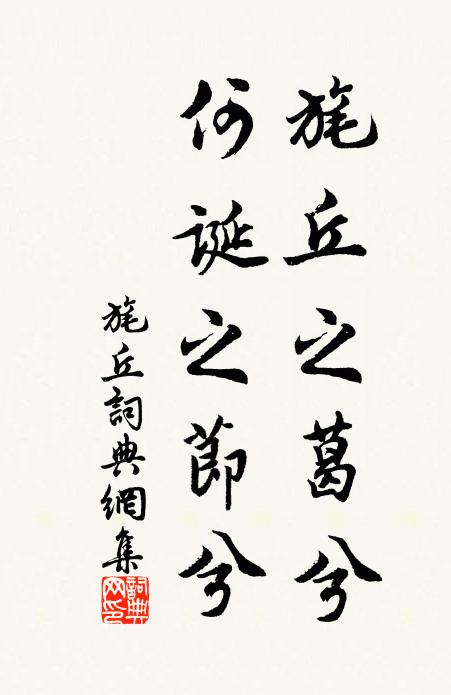 旄丘之葛兮
何誕之節兮
旄丘詞典網集
詞典网印